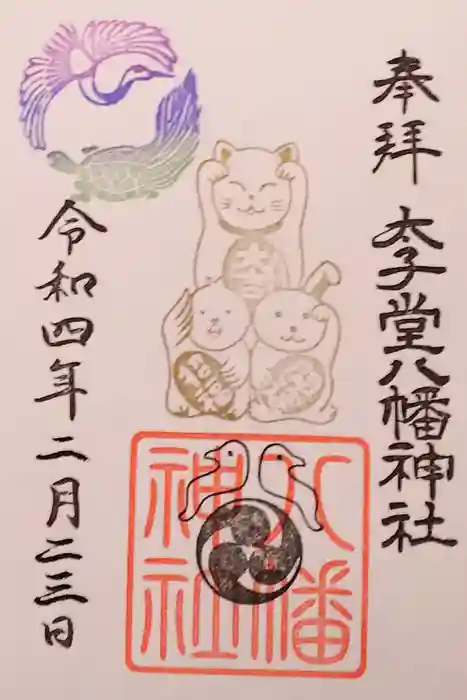 奉拝
太子堂八幡神社
八幡
神社
令和四年二月二三日